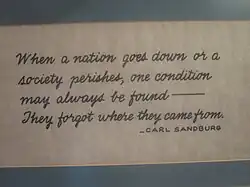 When a nation goes down or a
society perishes, one condition
may always be found ——
They forgot where they came from.
_CARL SANDBURG